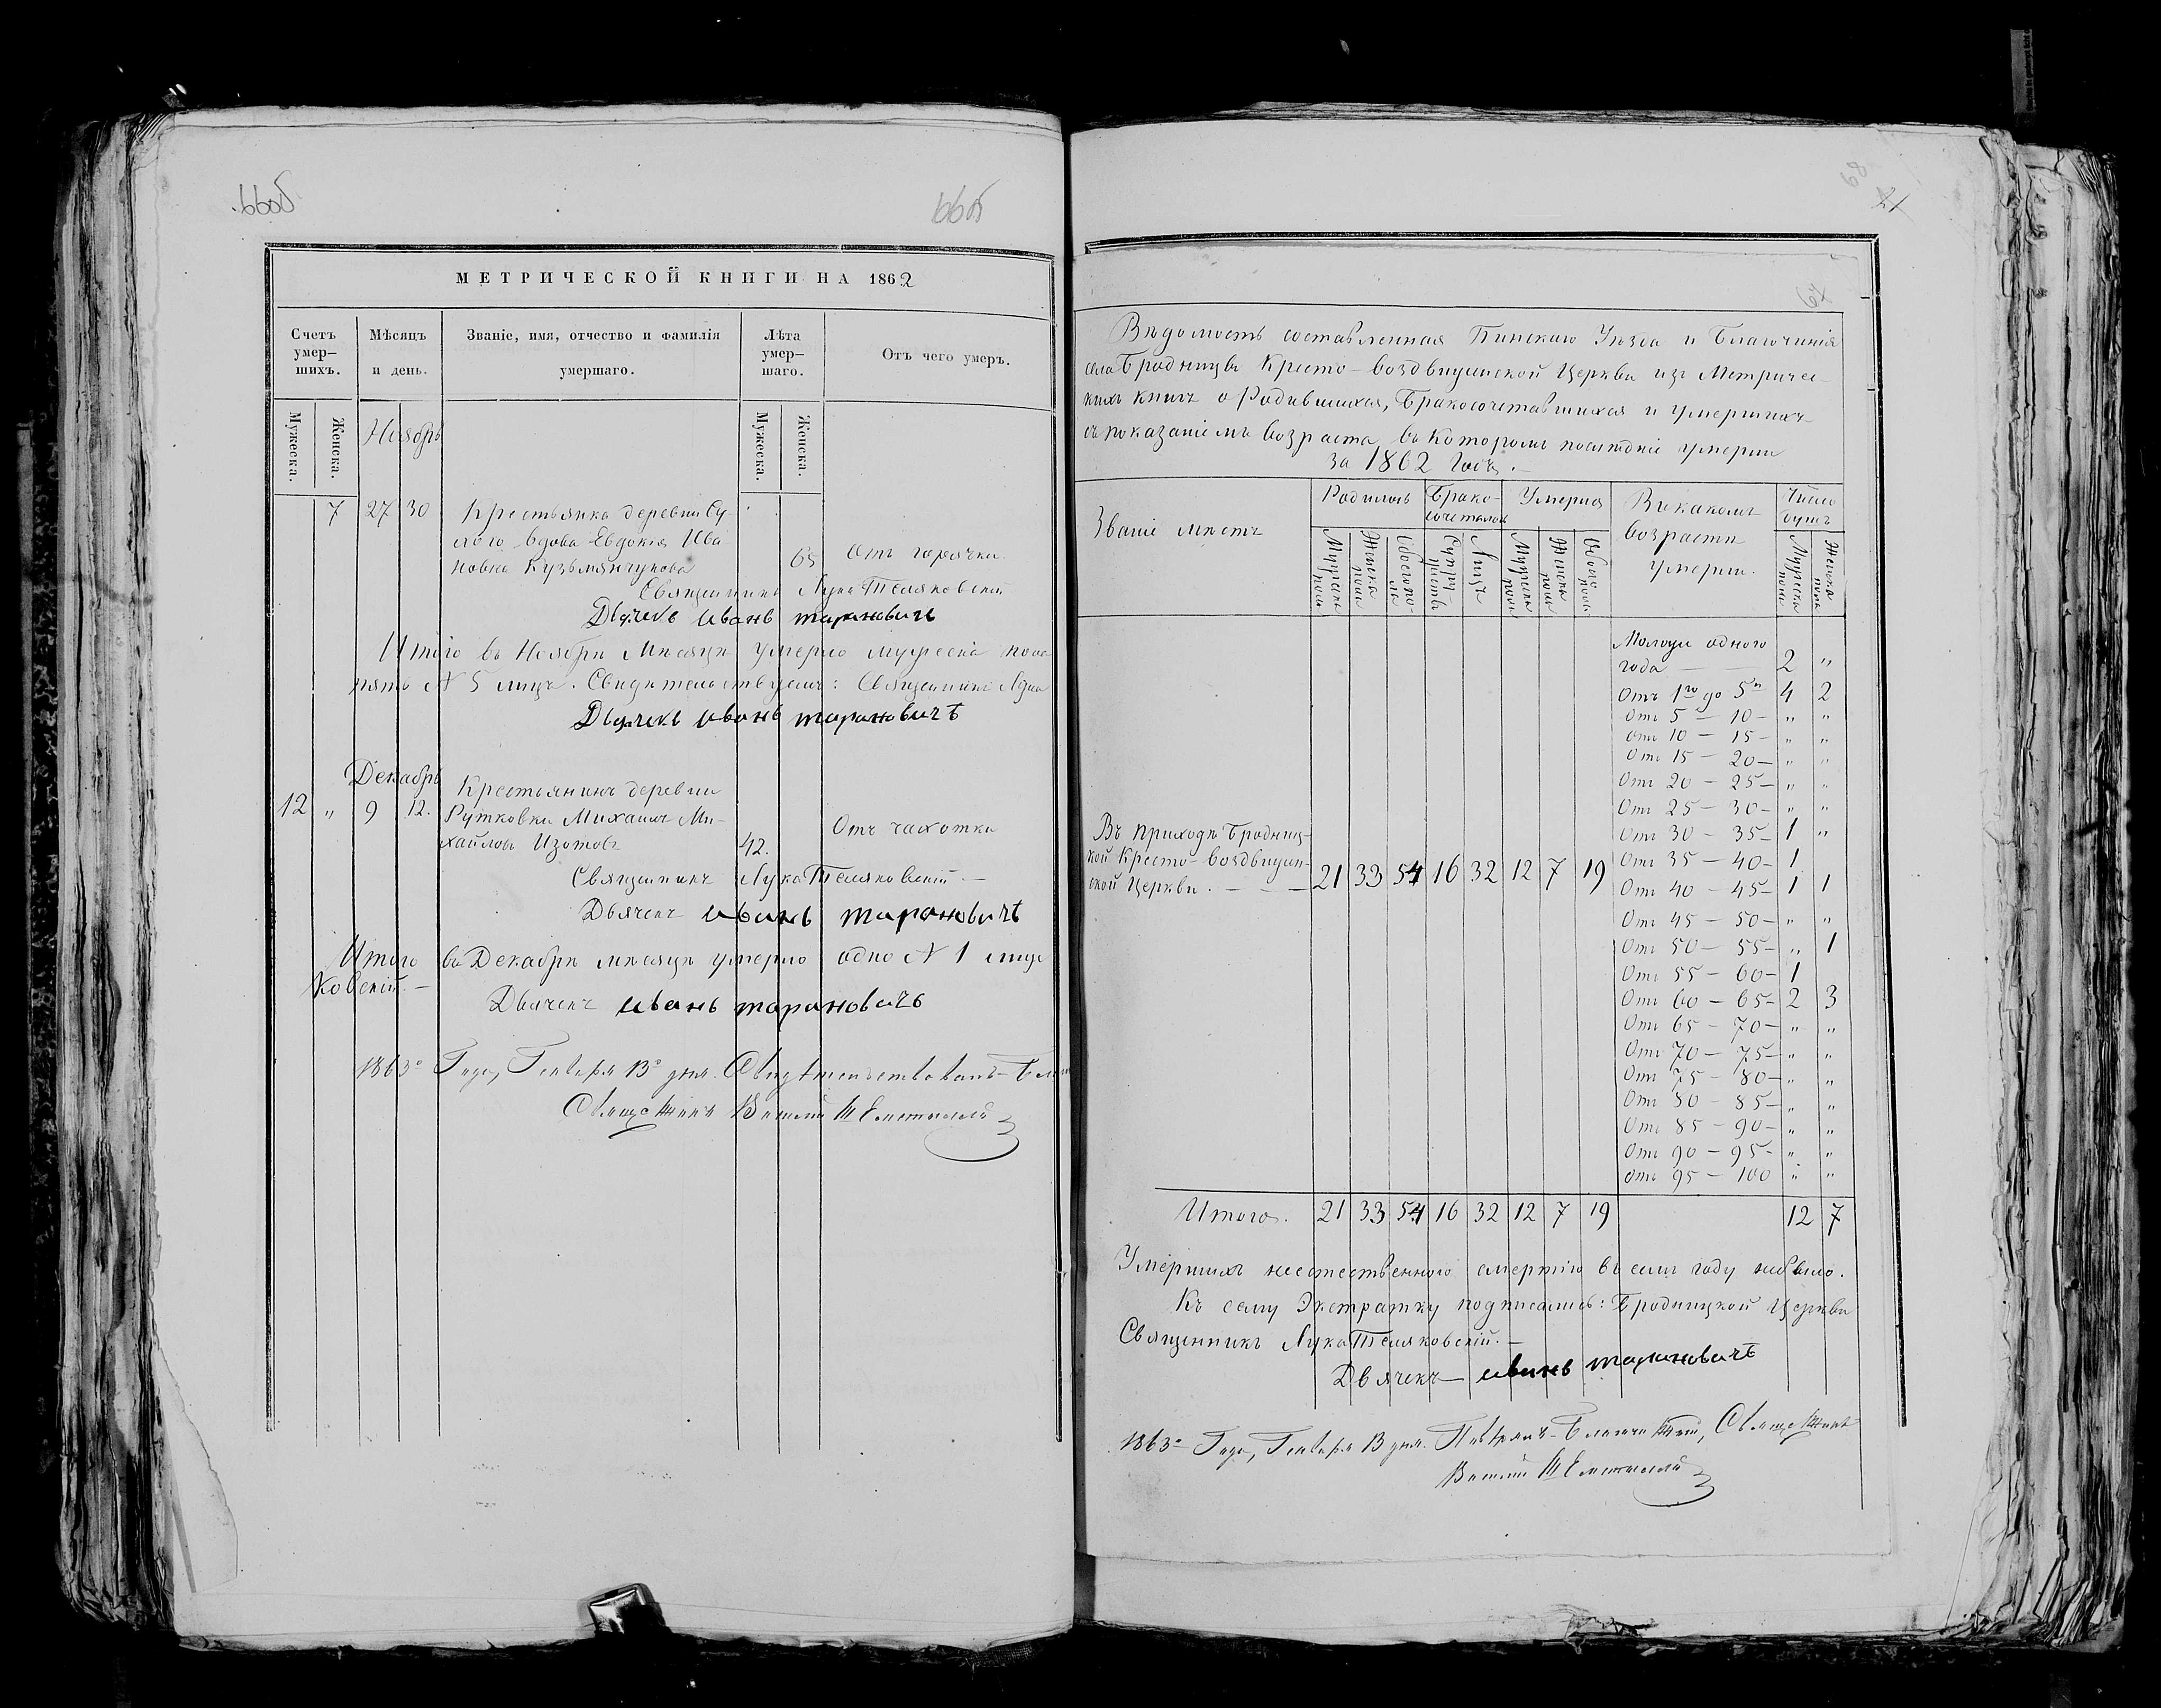 66об.
66об
МЕТРИЧЕСКОЙ КНИГИ НА 1862
Счетъ умер-шихъ.
Мѣсяцъ и день.
Званіе, имя, отчество и фамилія умершаго.
Лѣта умер-шаго.
Отъ чего умеръ.
Мужеска.
Женска.
Ноябрь
Мужеска.
Женска.
7 27 30 Крестьянка деревни Су-
хого вдова Евдокія Ива
новна Кузьмянчукова 65 Отъ горячки
Священникъ Лука Теляковскій
Дьячекъ иванъ тарановичъ
Итого въ Ноябрѣ Мѣсяцѣ умерло мужеска пола
пять № 5 лицъ. Свидѣтельствуемъ: Священникъ Лука
Дьячекъ иванъ тарановичъ
Декабрь
12 „ 9 12. Крестьянинъ деревни
Рутковки Михаилъ Ми-
хайловъ Изотовъ 42. Отъ чахотки
Священникъ Лука Теляковскій. —
Дьячекъ иванъ тарановичъ
Итого въ Декабрѣ мѣсяцѣ умерло одно № 1 лице
ковскій. —
Дьячекъ иванъ тарановичъ
1863º Года, Генваря 13º дня. Свидѣтельствовалъ
Священникъ
67
68
21
Вѣдомость составленная Пинскаго Уѣзда и Благочинія
села Бродницы Кресто-воздвиженской Церкви изъ Метричес-
кихъ книгъ о Родившихся, Бракосочетавшихся и умершихъ
съ показаніемъ возраста въ которомъ послѣдніе умерли
за 1862 Годъ. —
Званіе мѣстъ
Родилось
Брако-сочеталось
Умерло
Въ какомъ возрастѣ умерли.
Число душъ
Мужеска пола
Женска пола
Обоего пола
Супружествъ
Лицъ
Мужеска пола
Женска пола
Обоего пола
Мужеска пола
Женска пола
Въ приходѣ Бродниц-
кой Кресто-воздвижен-
ской Церкви. — — — 21 33 54 16 32 12 7 19
Моложе одного
года — 2 „
Отъ 1го до 5ти 4 2
Отъ 5 — 10 — „ „
Отъ 10 — 15 — „ „
Отъ 15 — 20 — „ „
Отъ 20 — 25 — „ „
Отъ 25 — 30 — „ „
Отъ 30 — 35 — 1 „
Отъ 35 — 40 — 1
Отъ 40 — 45 — 1 1
Отъ 45 — 50 — „ „
Отъ 50 — 55 — „ 1
Отъ 55 — 60 — 1
Отъ 60 — 65 — 2 3
Отъ 65 — 70 — „ „
Отъ 70 — 75 — „ „
Отъ 75 — 80 — „ „
Отъ 80 — 85 — „ „
Отъ 85 — 90 — „ „
Отъ 90 — 95 — „ „
Отъ 95 — 100 „ „
Итого. 21 33 54 16 32 12 7 19 12 7
Умершихъ неестественною смертію въ семъ году небыло.
Къ сему Экстракту подписались: Бродницкой Церкви
Священникъ Лука Теляковскій. —
Дьячекъ — иванъ тарановичъ
1863º Года, Генваря 13 дня. Священникъ